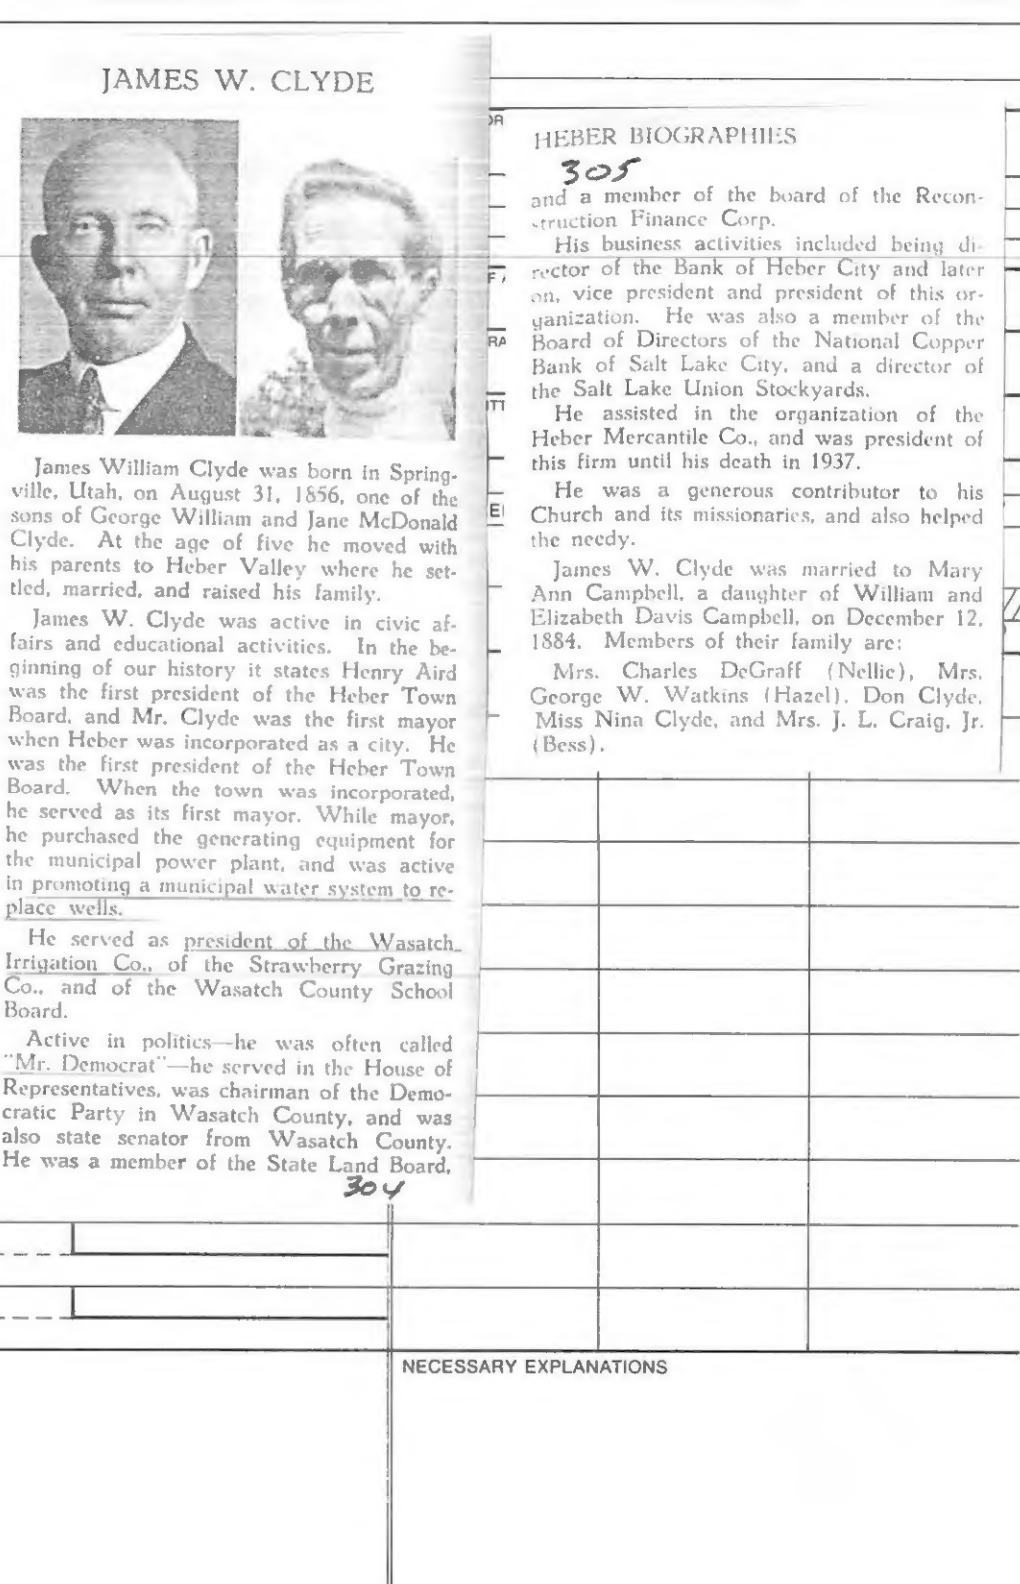 JAMES W. CLYDE
James William Clyde was born in Spring-
ville, Utah, on August 31, 1856, one of the
sons of George William and Jane McDonald
Clyde. At the age of five he moved with
his parents to Heber Valley where he set-
tled, married, and raised his family.
James W. Clyde was active in civic af-
fairs and educational activities. In the be-
ginning of our history it states Henry Aird
was the first president of the Heber Town
Board, and Mr. Clyde was the first mayor
when Heber was incorporated as a city. He
was the first president of the Heber Town
Board. When the town was incorporated,
he served as its first mayor. While mayor,
he purchased the generating equipment for
the municipal power plant, and was active
in promoting a municipal water system to re-
place wells.
He served as president of the Wasatch
Irrigation Co., of the Strawberry Grazing
Co., and of the Wasatch County School
Board.
Active in politics—he was often called
"Mr. Democrat"—he served in the House of
Representatives, was chairman of the Demo-
cratic Party in Wasatch County, and was
also state senator from Wasatch County.
He was a member of the State Land Board,
304
HEBER BIOGRAPHIES
305
and a member of the board of the Recon-
struction Finance Corp.
His business activities included being di-
rector of the Bank of Heber City and later
on, vice president and president of this or-
ganization. He was also a member of the
Board of Directors of the National Copper
Bank of Salt Lake City, and a director of
the Salt Lake Union Stockyards.
He assisted in the organization of the
Heber Mercantile Co., and was president of
this firm until his death in 1937.
He was a generous contributor to his
Church and its missionaries, and also helped
the needy.
James W. Clyde was married to Mary
Ann Campbell, a daughter of William and
Elizabeth Davis Campbell, on December 12,
1884. Members of their family are:
Mrs. Charles DeGraff (Nellie), Mrs.
George W. Watkins (Hazel), Don Clyde,
Miss Nina Clyde, and Mrs. J. L. Craig, Jr.
(Bess).
OR
F
RA
ITT
E
NECESSARY EXPLANATIONS